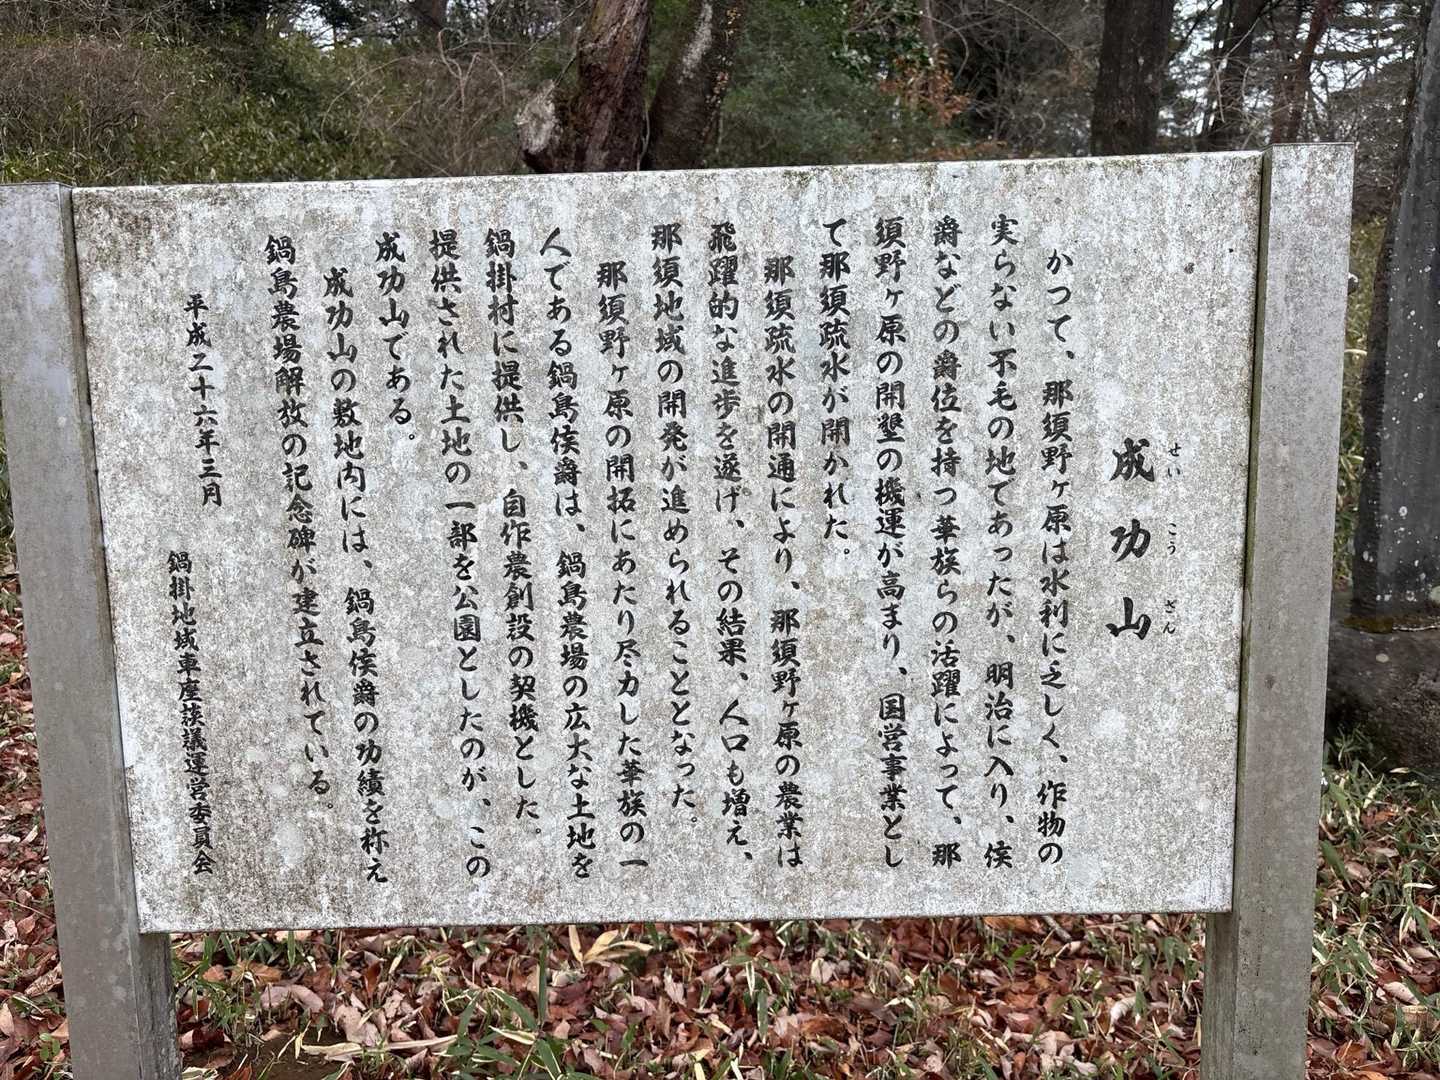 せいこうざん
成功山
かつて、那須野ヶ原は水利に乏しく、作物の
実らない不毛の地であったが、明治に入り、侯
爵などの爵位を持つ華族らの活躍によって、那
須野ヶ原の開墾の機運が高まり、国営事業とし
て那須疏水が開かれた。
那須疏水の開通により、那須野ヶ原の農業は
飛躍的な進歩を遂げ、その結果、人口も増え、
那須地域の開発が進められることとなった。
那須野ヶ原の開拓にあたり尽力した華族の一
人である鍋島侯爵は、鍋島農場の広大な土地を
鍋掛村に提供し、自作農創設の契機とした。
提供された土地の一部を公園としたのが、この
成功山である。
成功山の敷地内には、鍋島侯爵の功績を称え
鍋島農場解放の記念碑が建立されている。
平成二十六年三月
鍋掛地域車座談議運営委員会